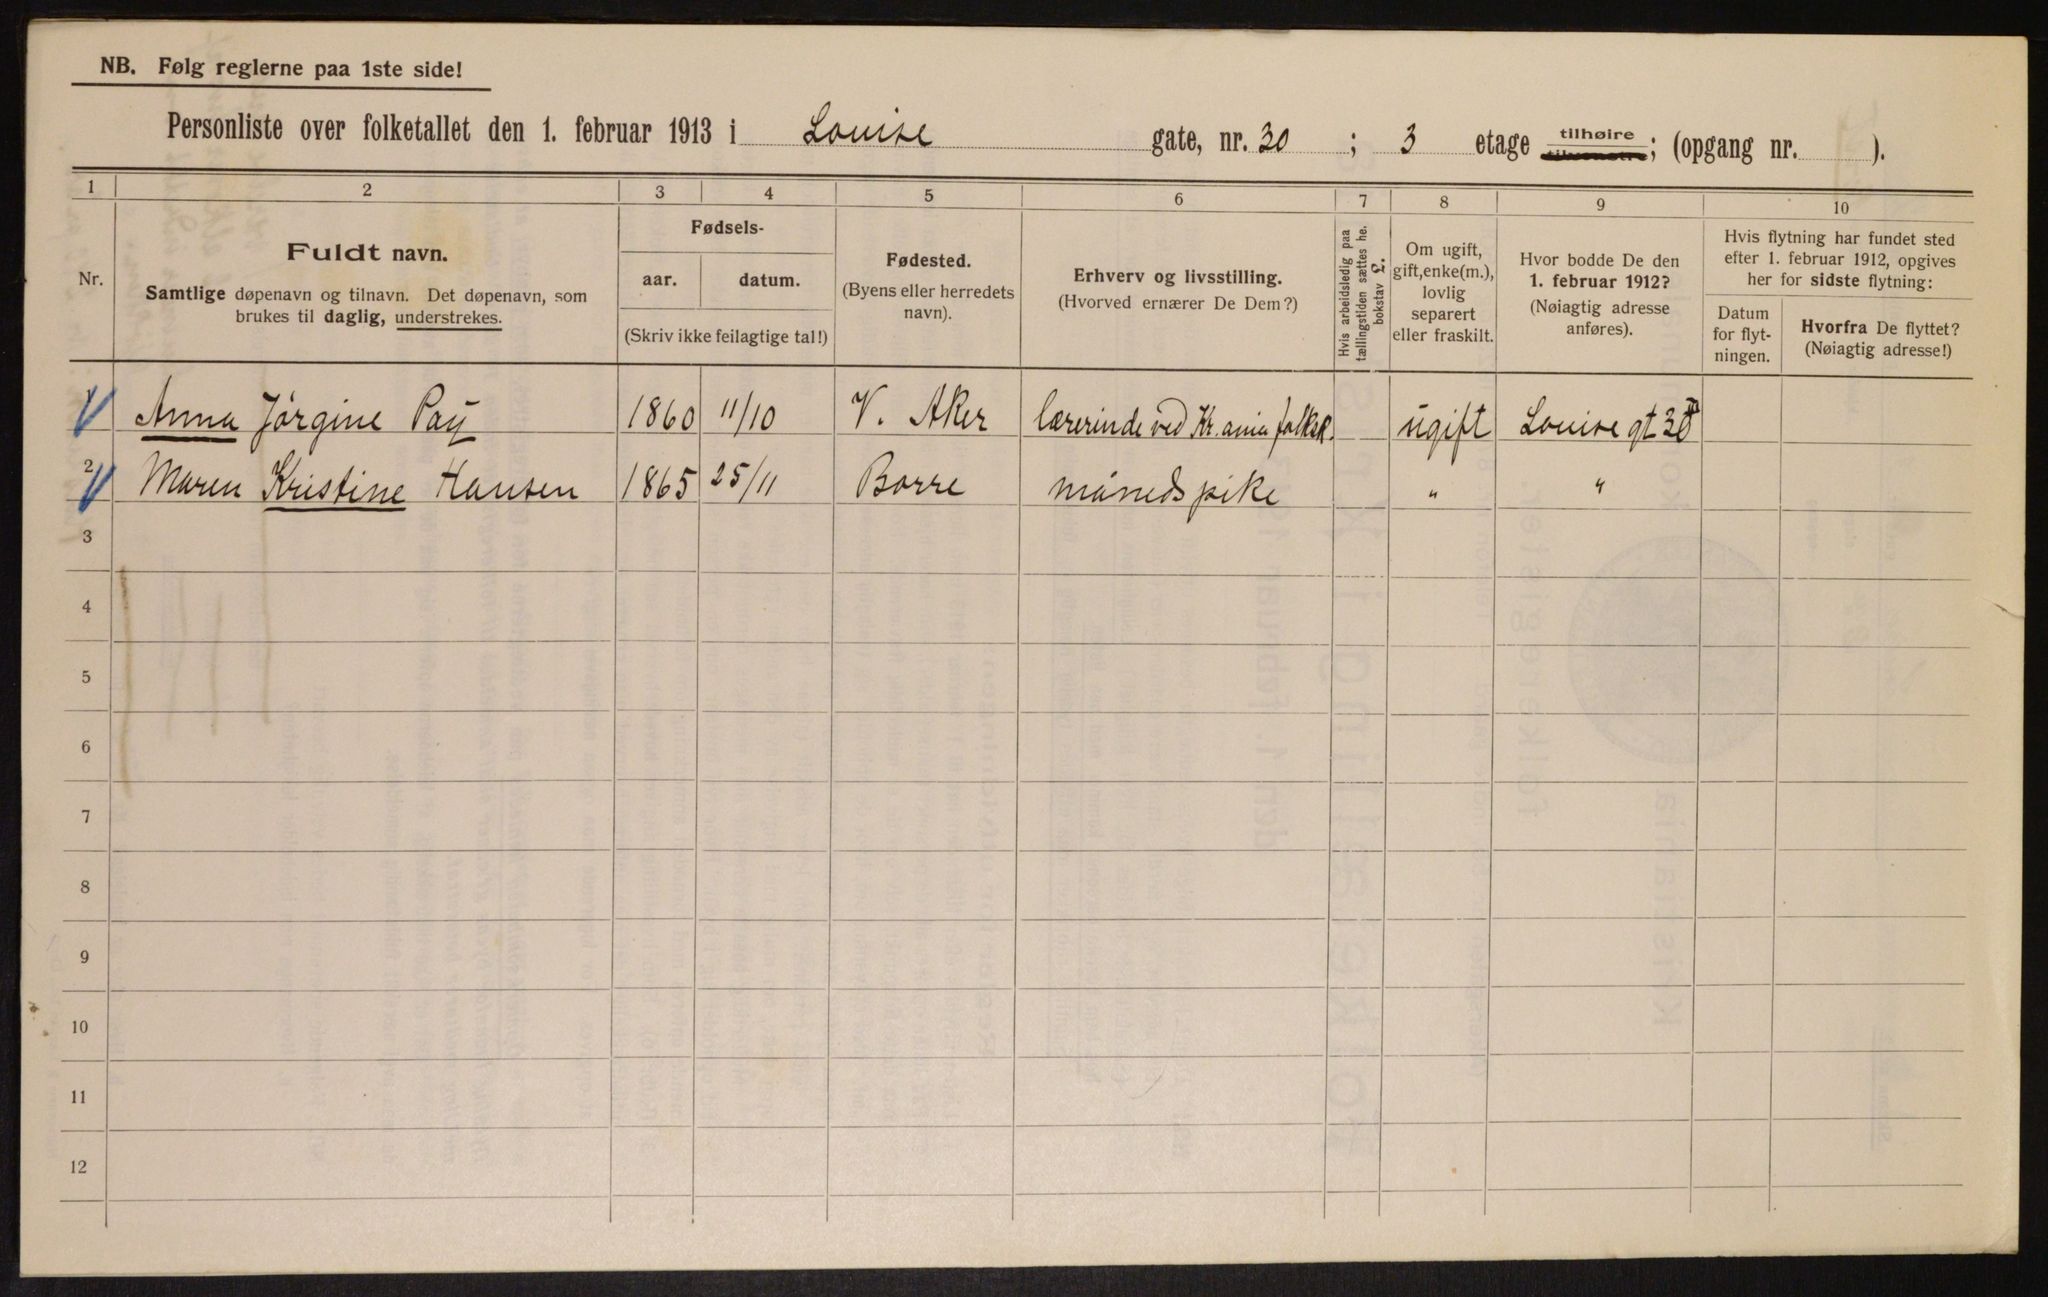 NB. Følg reglerne paa 1ste side!
Personliste over folketallet den 1. februar 1913 i Louise gate, nr. 30 ; 3 etage tilhøire tilvenstre; (opgang nr. ).
1 2 3 4 5 6 7 8 9 10
Nr.
Fuldt navn.
Samtlige døpenavn og tilnavn. Det døpenavn, som
brukes til daglig, understrekes.
Fødsels-
aar. datum.
(Skriv ikke feilagtige tal!)
Fødested.
(Byens eller herredets
navn).
Erhverv og livsstilling.
(Hvorved ernærer De Dem?)
Hvis arbeidsledig paa
tællingstiden sættes he.
bokstav L.
Om ugift,
gift, enke(m.),
lovlig
separert
eller fraskilt.
Hvor bodde De den
1. februar 1912?
(Nøiagtig adresse
anføres).
Hvis flytning har fundet sted
efter 1. februar 1912, opgives
her for sidste flytning:
Datum
for flyt-
ningen.
Hvorfra De flyttet?
(Nøiagtig adresse!)
1 Anna Jørgine Pay 1860 11/10 V. Aker lærerinde ved Kr.ania folksk. ugift Louise gt 30
2 Maren Kristine Hansen 1865 25/11 Borre månedspike " "
3
4
5
6
7
8
9
10
11
12